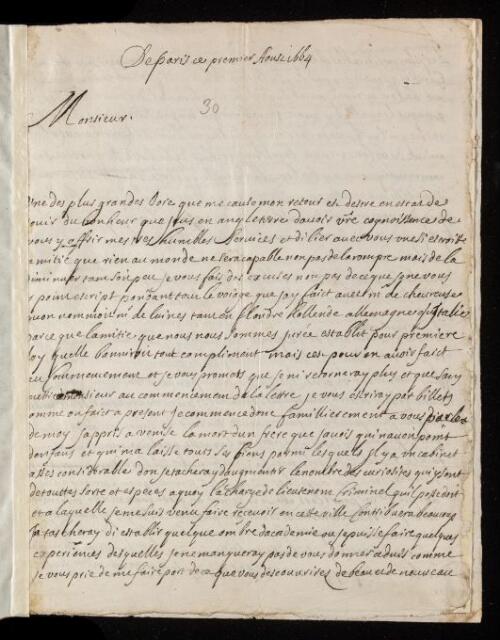 De paris ce premier Aoust 1664
30
Monsieur.
Une des plus grandes Joye que me cause mon retour est destre en estat de
Jouir du bonheur que J'eus en angleterre d'avoir vre cognoissence de
vous y assurmes tres humbles Services et di lier avec vous une si estroite
amitié que rien au monde ne sera capable non pas de la rompre mais de la
diminuer tam soit peu Je vous fais des excuses non pas de ce que Je ne vous
ay point escript pendant tout le voiage que Jay faict avec Mr de chevreuse
mon nommoint de luines tam en flandre hollende allemagne qu'Italie
parce que lamitie que nous nous sommes Jurée establit pour premiere
loy quelle bannira tout compliment mais cest pour en avoir faict
au commencement et Je vous promets que Je ni retourneray plus et que Sans
monsieur au commencement de la lettre Je vous escriray par billets
comme on faict a present Je commence donc famillierement a vous parler
de moy J'appris a venise la mort dun frere que J'avois qui n'avoit point
denfans et qui ma laissé tous ses biens parmi lesquels Il y a un cabinet
assés considerable don Je tacheray daugmenter le nombre des curiosités qui y sont
de toutes sorte et especes a quoy la charge de lieutenent Criminel quil possedoit
et a laquelle Je me suis venu faire recevoir en ceste ville contribuera beaucoup
Je tascheray di establir quelque ombre dacademie ou Je puisse faire quelques
experiences desquelles Je ne manqueray pas de vous donner advis comme
Je vous prie de me faire part de ce que vous descouvrires de beau et de nouveau